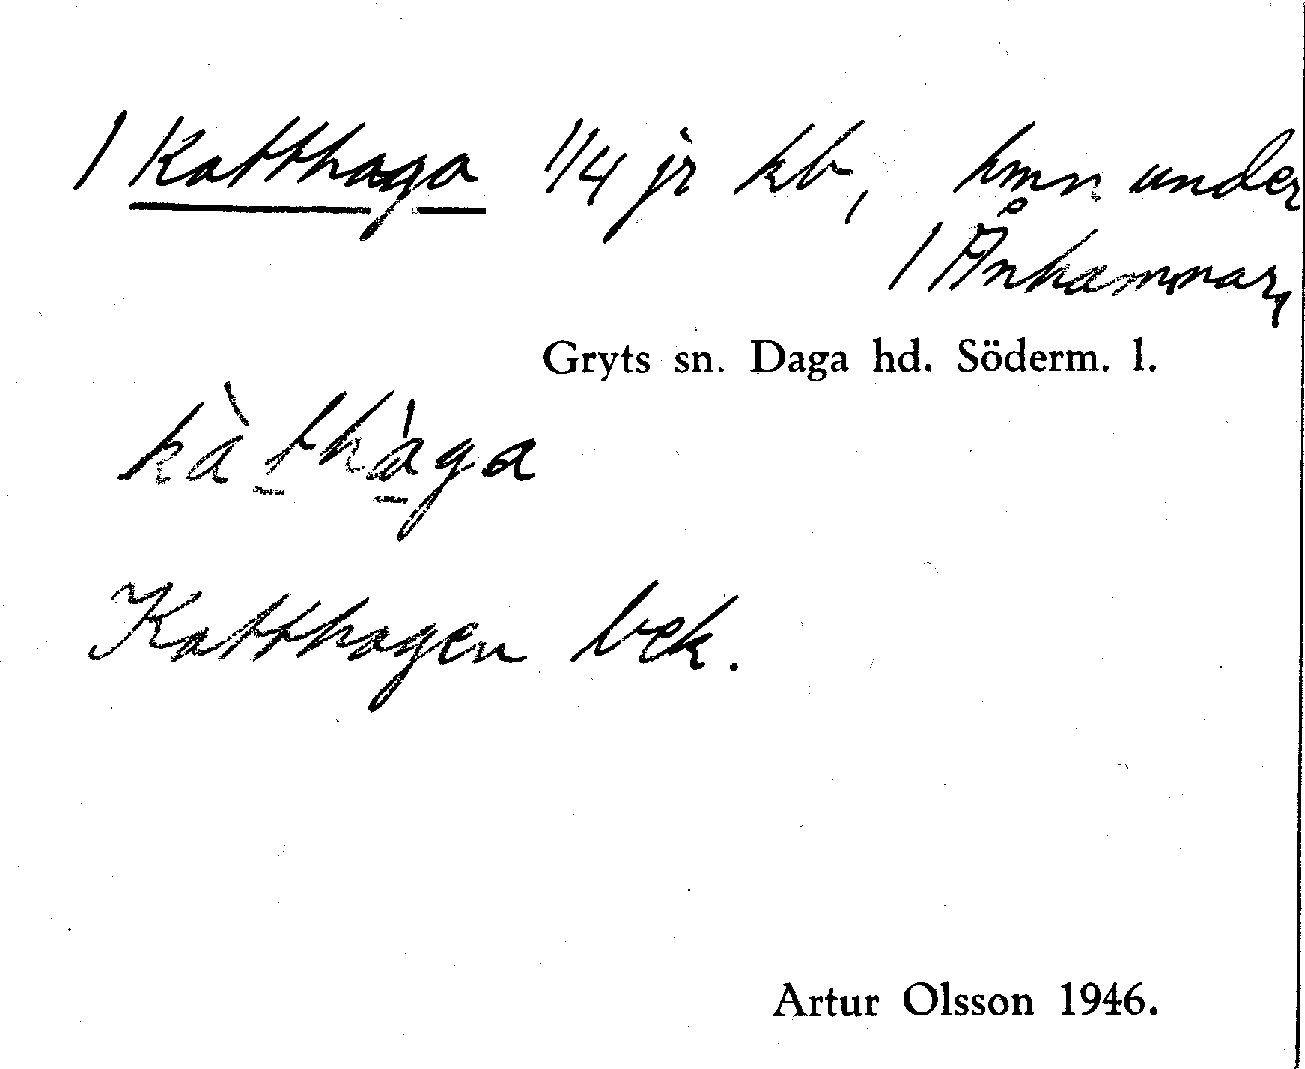 1 Katthaga 1/4 jr kb, hmn under
1 Ånhammar,
Gryts sn. Daga hd. Söderm. l.
kàthàga
Katthagen bek.
Artur Olsson 1946.